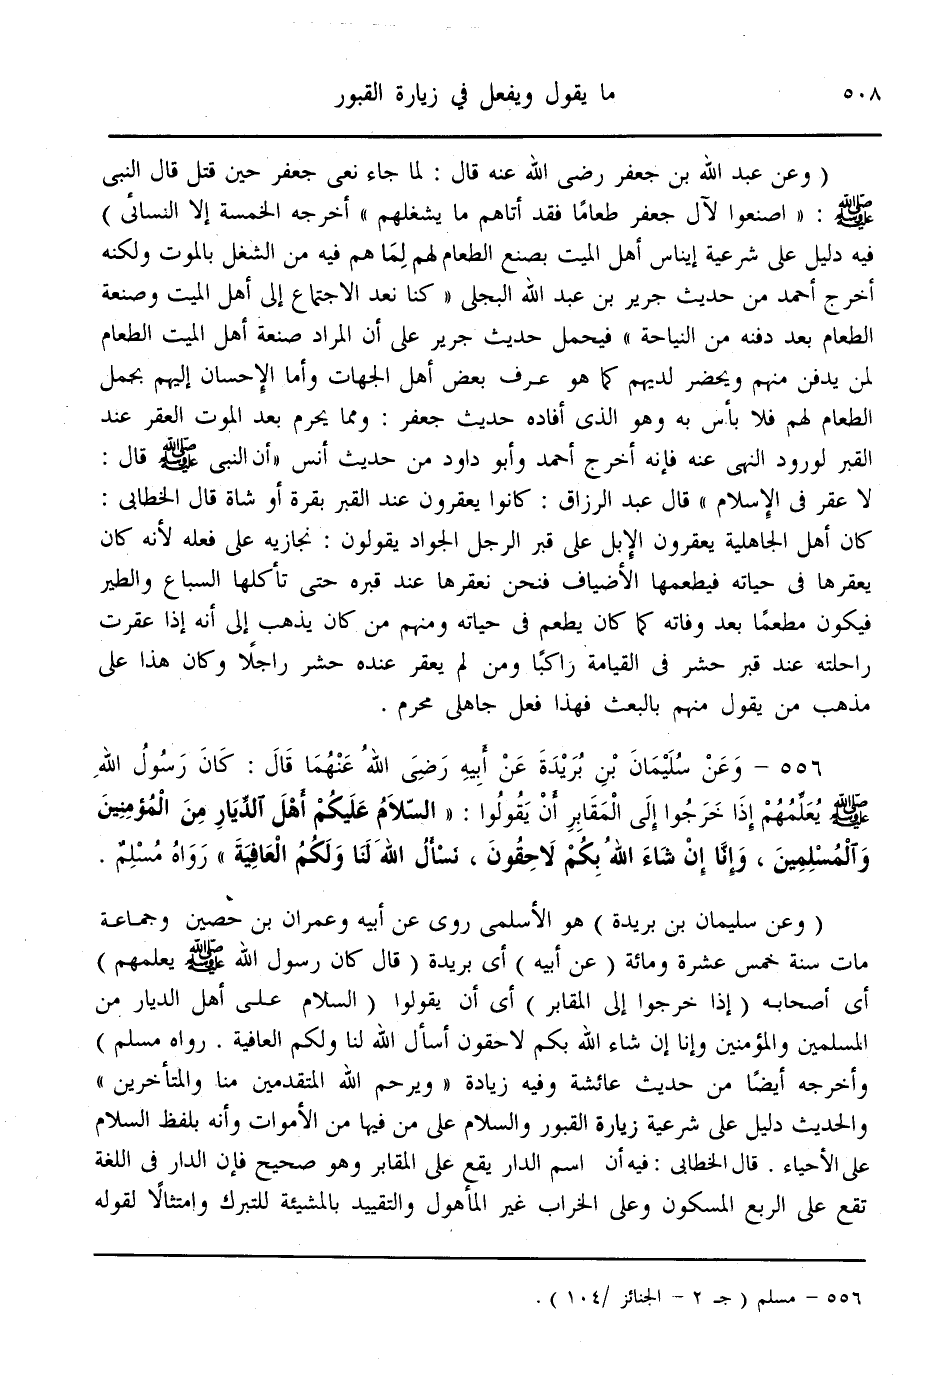 ٥٠٨ ما يقول ويفعل في زيارة القبور
( وعن عبد الله بن جعفر رضى الله عنه قال : لما جاء نعى جعفر حين قتل قال النبى
ﷺ : « اصنعوا لآل جعفر طعامًا فقد أتاهم ما يشغلهم » أخرجه الخمسة إلا النسائى )
فيه دليل على شرعية إيناس أهل الميت بصنع الطعام لهم لِمَا هم فيه من الشغل بالموت ولكنه
أخرج أحمد من حديث جرير بن عبد الله البجلى « كنا نعد الاجتماع إلى أهل الميت وصنعة
الطعام بعد دفنه من النياحة » فيحمل حديث جرير على أن المراد صنعة أهل الميت الطعام
لمن يدفن منهم ويحضر لديهم كما هو عرف بعض أهل الجهات وأما الإحسان إليهم بحمل
الطعام لهم فلا بأس به وهو الذى أفاده حديث جعفر : ومما يحرم بعد الموت العقر عند
القبر لورود النهى عنه فإنه أخرج أحمد وأبو داود من حديث أنس «أن النبى ﷺ قال :
لا عقر فى الإسلام » قال عبد الرزاق : كانوا يعقرون عند القبر بقرة أو شاة قال الخطابى :
كان أهل الجاهلية يعقرون الإبل على قبر الرجل الجواد يقولون : نجازيه على فعله لأنه كان
يعقرها فى حياته فيطعمها الأضياف فنحن نعقرها عند قبره حتى تأكلها السباع والطير
فيكون مطعمًا بعد وفاته كما كان يطعم فى حياته ومنهم من كان يذهب إلى أنه إذا عقرت
راحلته عند قبر حشر فى القيامة راكبًا ومن لم يعقر عنده حشر راجلًا وكان هذا على
مذهب من يقول منهم بالبعث فهذا فعل جاهلى محرم .
٥٥٦ - وَعَنْ سُلَيْمَانَ بْنِ بُرَيْدَةَ عَنْ أَبِيهِ رَضِىَ اللهُ عَنْهُمَا قَالَ : كَانَ رَسُولُ اللهِ
ﷺ يُعَلِّمُهُمْ إِذَا خَرَجُوا إِلَى الْمَقَابِرِ أَنْ يَقُولُوا : « السَّلَامُ عَلَيْكُمْ أَهْلَ الدِّيَارِ مِنَ الْمُؤمِنِينَ
وَالْمُسْلِمِينَ ، وَإِنَّا إِنْ شَاءَ اللهُ بِكُمْ لَاحِقُونَ ، نَسْأَلُ اللهَ لَنَا وَلَكُمُ الْعَافِيَةَ » رَوَاهُ مُسْلِمٌ .
( وعن سليمان بن بريدة ) هو الأسلمى روى عن أبيه وعمران بن حصين وجماعة
مات سنة خمس عشرة ومائة ( عن أبيه ) أى بريدة ( قال كان رسول الله ﷺ يعلمهم )
أى أصحابه ( إذا خرجوا إلى المقابر ) أى أن يقولوا ( السلام على أهل الديار من
المسلمين والمؤمنين وإنا إن شاء الله بكم لاحقون أسأل الله لنا ولكم العافية . رواه مسلم )
وأخرجه أيضًا من حديث عائشة وفيه زيادة « ويرحم الله المتقدمين منا والمتأخرين »
والحديث دليل على شرعية زيارة القبور والسلام على من فيها من الأموات وأنه بلفظ السلام
على الأحياء . قال الخطابى : فيه أن اسم الدار يقع على المقابر وهو صحيح فإن الدار فى اللغة
تقع على الربع المسكون وعلى الخراب غير المأهول والتقييد بالمشيئة للتبرك وامتثالًا لقوله
٥٥٦ - مسلم ( جـ ٢ - الجنائز /١٠٤ ) .